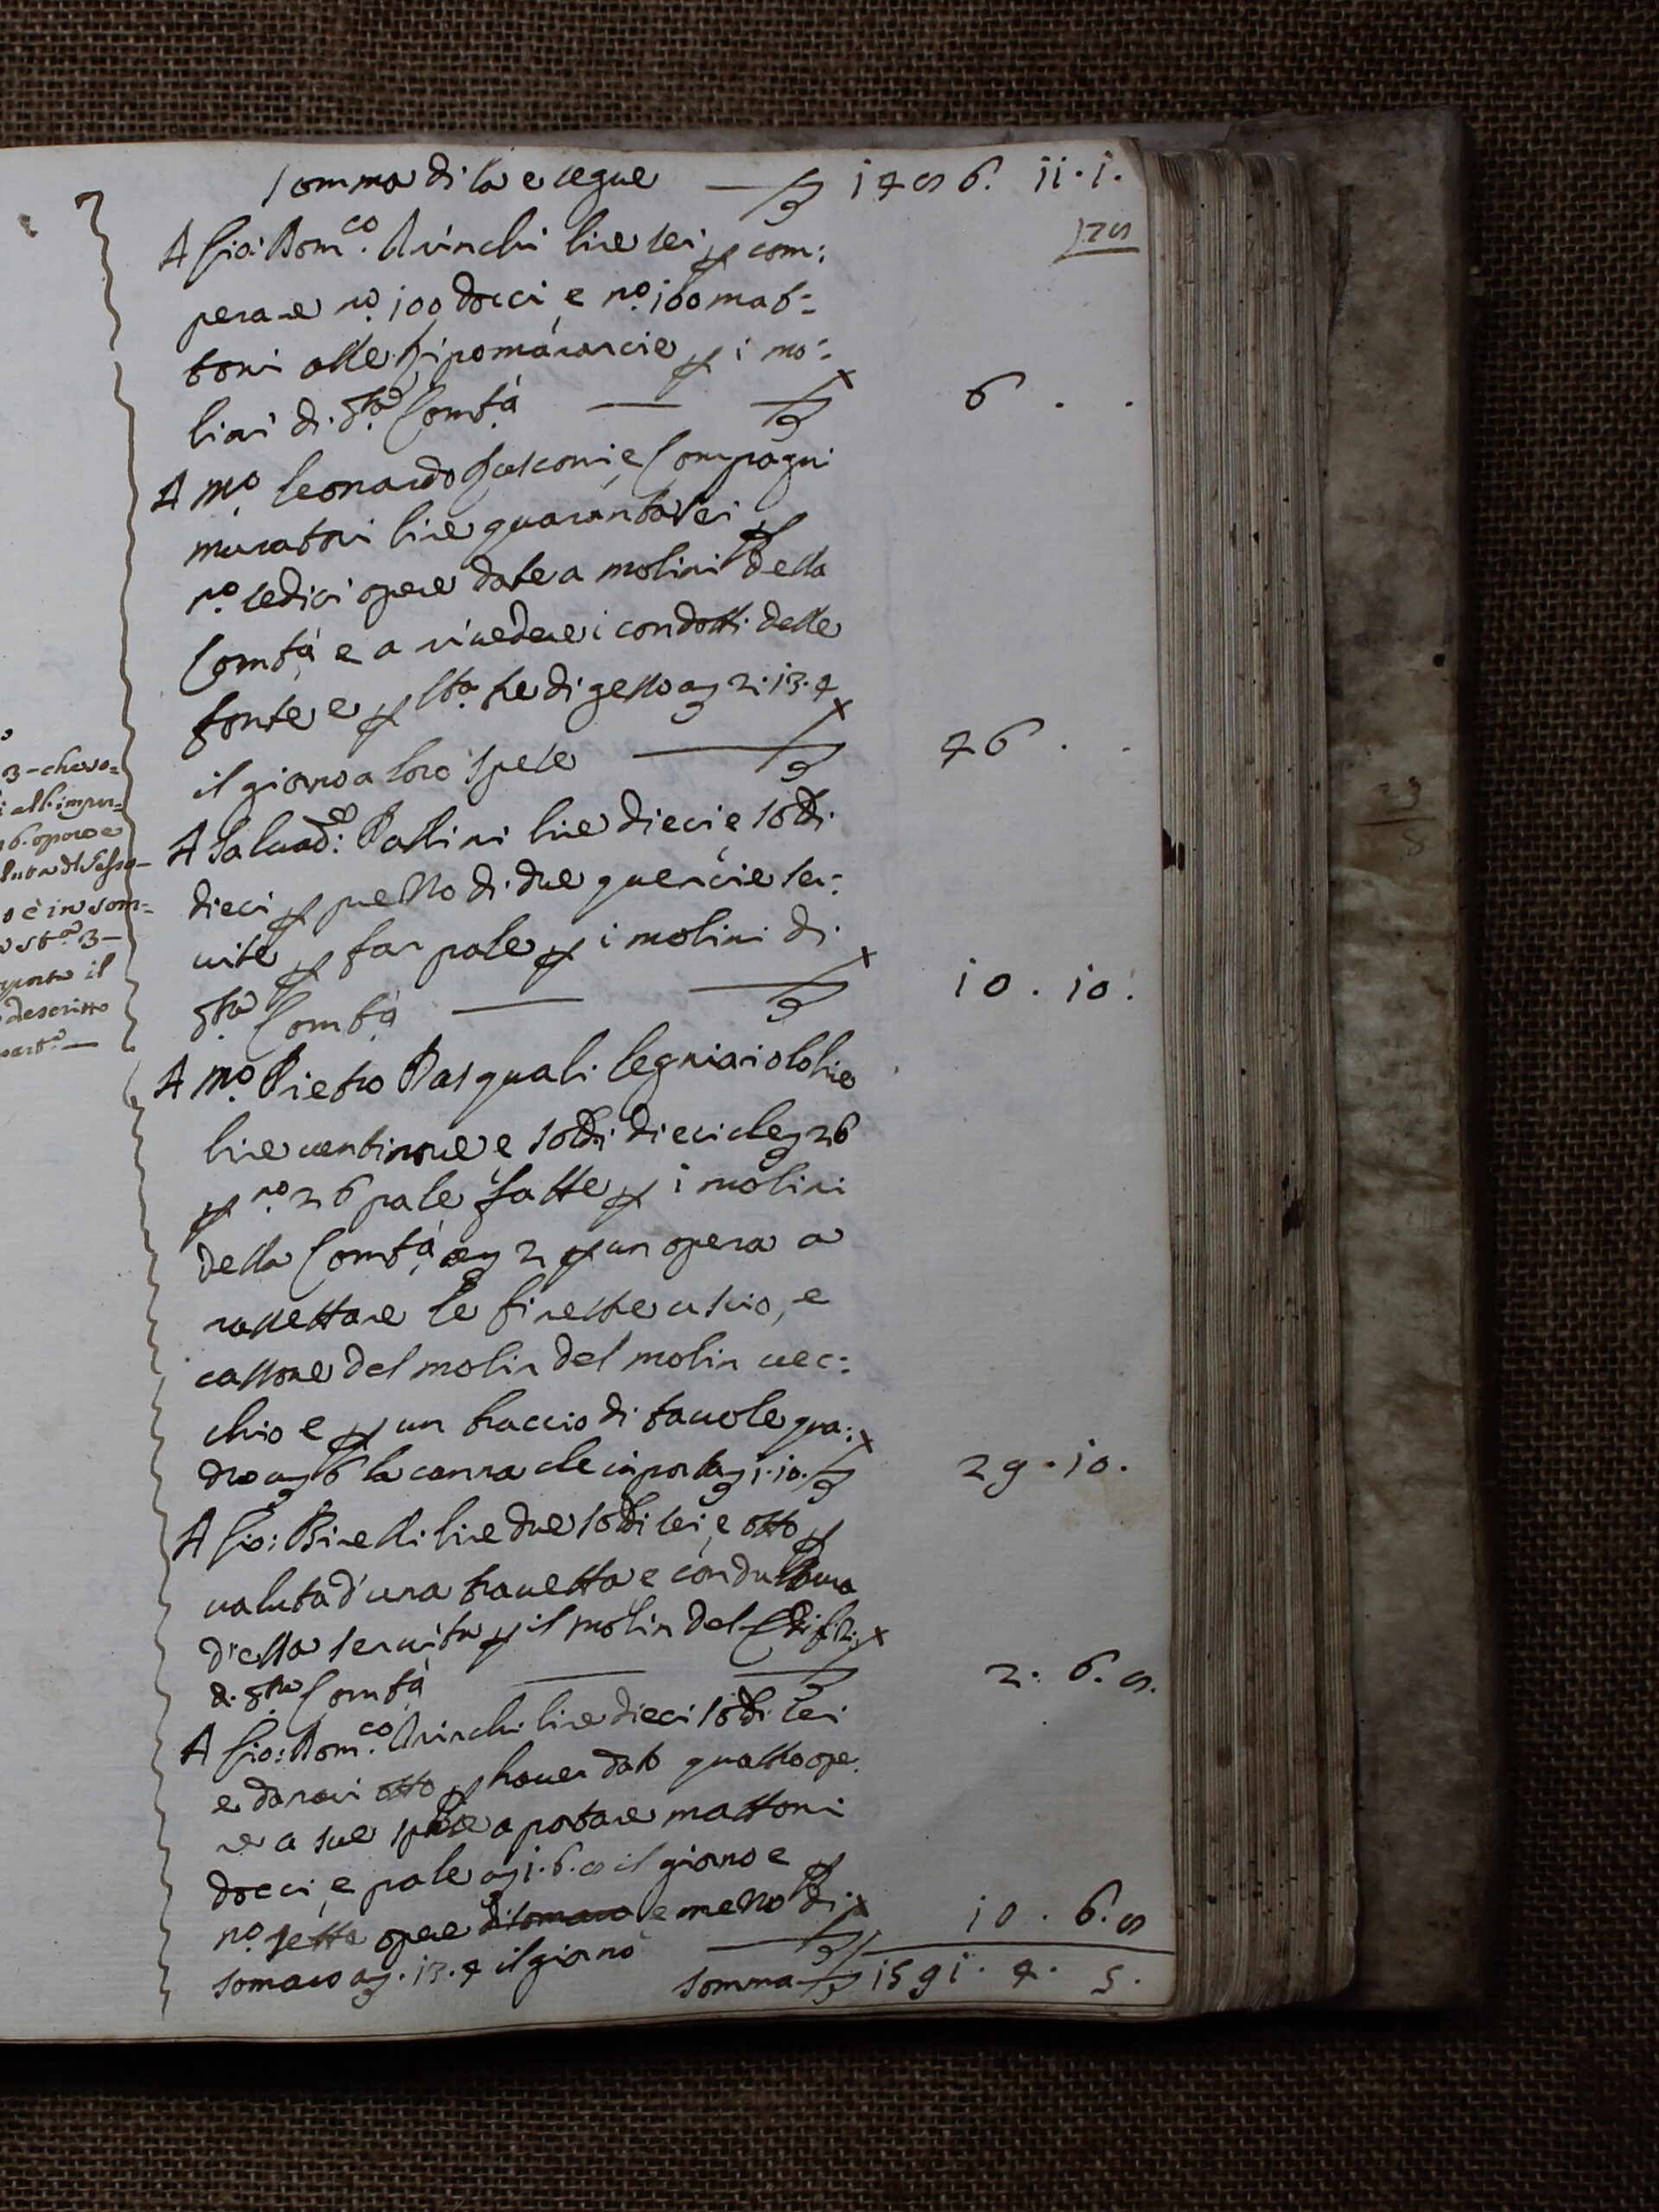 Somma di la e segue — £ 1486. 11. 1.
178
A Gio: Dom.co Arinchi lire sei p com:
perare n.o 100 docci, e n.o 100 mat:
toni alle Ripomarancie p i mo:
lini di d.ta Com.tà — £ 6 . .
A m.o Leonardo Guasconi, e Compagni
muratori lire quarantasei p
n.o sedici opere date a molini della
Com.tà e a rivedere i condotti delle
fonte e p st.a tre di gesso a £ 2. 13. 4
il giorno a loro spese — £ 46 . .
A Salvad.re Pallini lire dieci, e soldi
dieci p prezzo di due quercie ser:
vite p far pale p i molini di
d.ta Com.tà — £ 10. 10.
A m.o Pietro Pasquali legniaiolo lire
lire ventinove, e soldi dieci cle £ 26
p n.o 26 pale fatte p i molini
della Com.tà, £ 2 p un opera a
rassettare le finestre uscio, e
cassone del molin del molin vec:
chio e p un braccio di tavole qua:
dro a £ 6 la canna cle importa £ 1. 10. £ 29. 10.
A Gio: Birelli lire due soldi sei, e otto p
valuta d'una travetta, e condultura
d'essa servita p il molin del Edifizi
di d.ta Com.tà — £ 2. 6. 8.
A Gio: Dom.co Arinchi lire dieci soldi sei
e danari otto p haver dato quattro ope
re a sue spese a portare mattoni
docci, e pale a £ 1. 6. 8 il giorno e p
n.o sette opere di somaro e mezzo di
somaro a £ . 13. 4 il giorno — £ 10. 6. 8
Somma £ 1591. 4. 5.
3 – che so=
i alb. impor=
16. opere e
luta di Gesso
o è in som=
st.a 3 –
porta il
descritto
part.a —